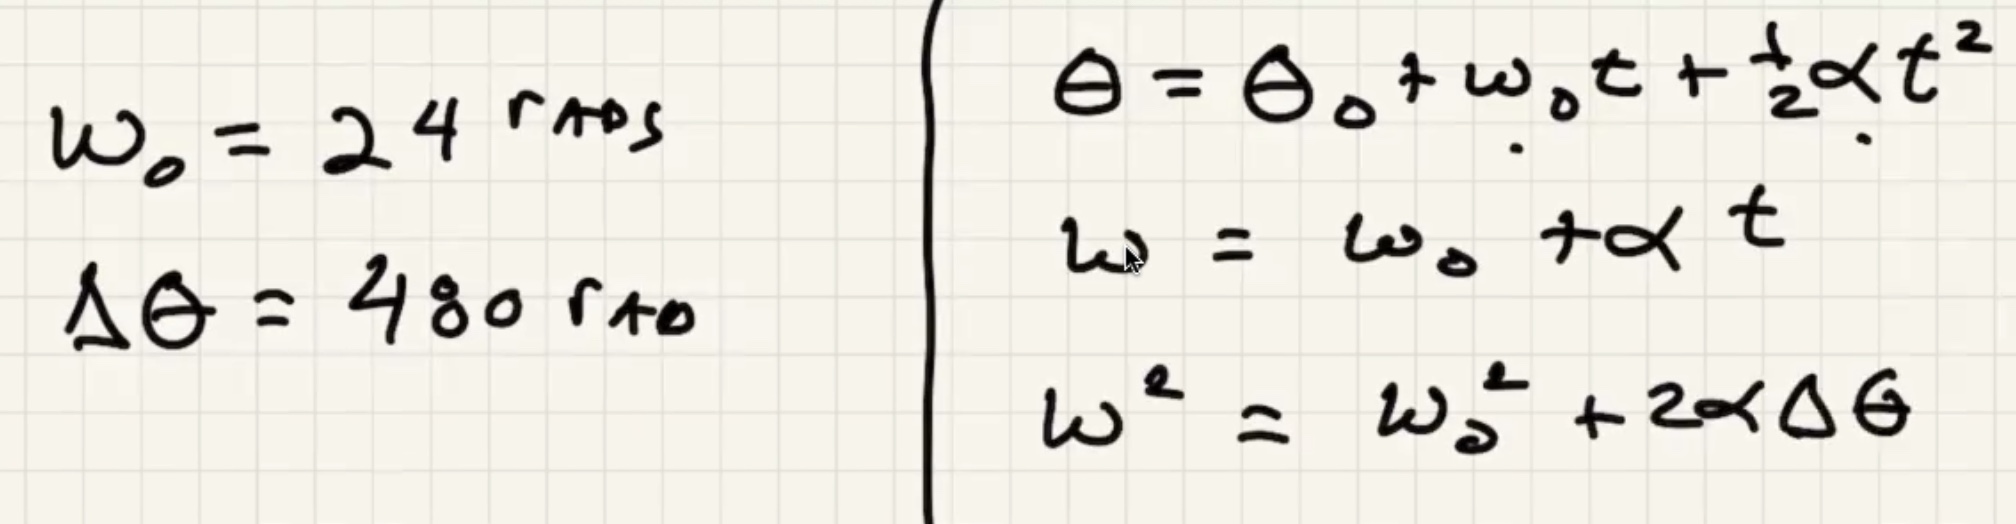 ω₀ = 24 rads
Δθ = 480 rad
θ = θ₀ + ω₀t + ½αt²
ω = ω₀ + αt
ω² = ω₀² + 2αΔθ